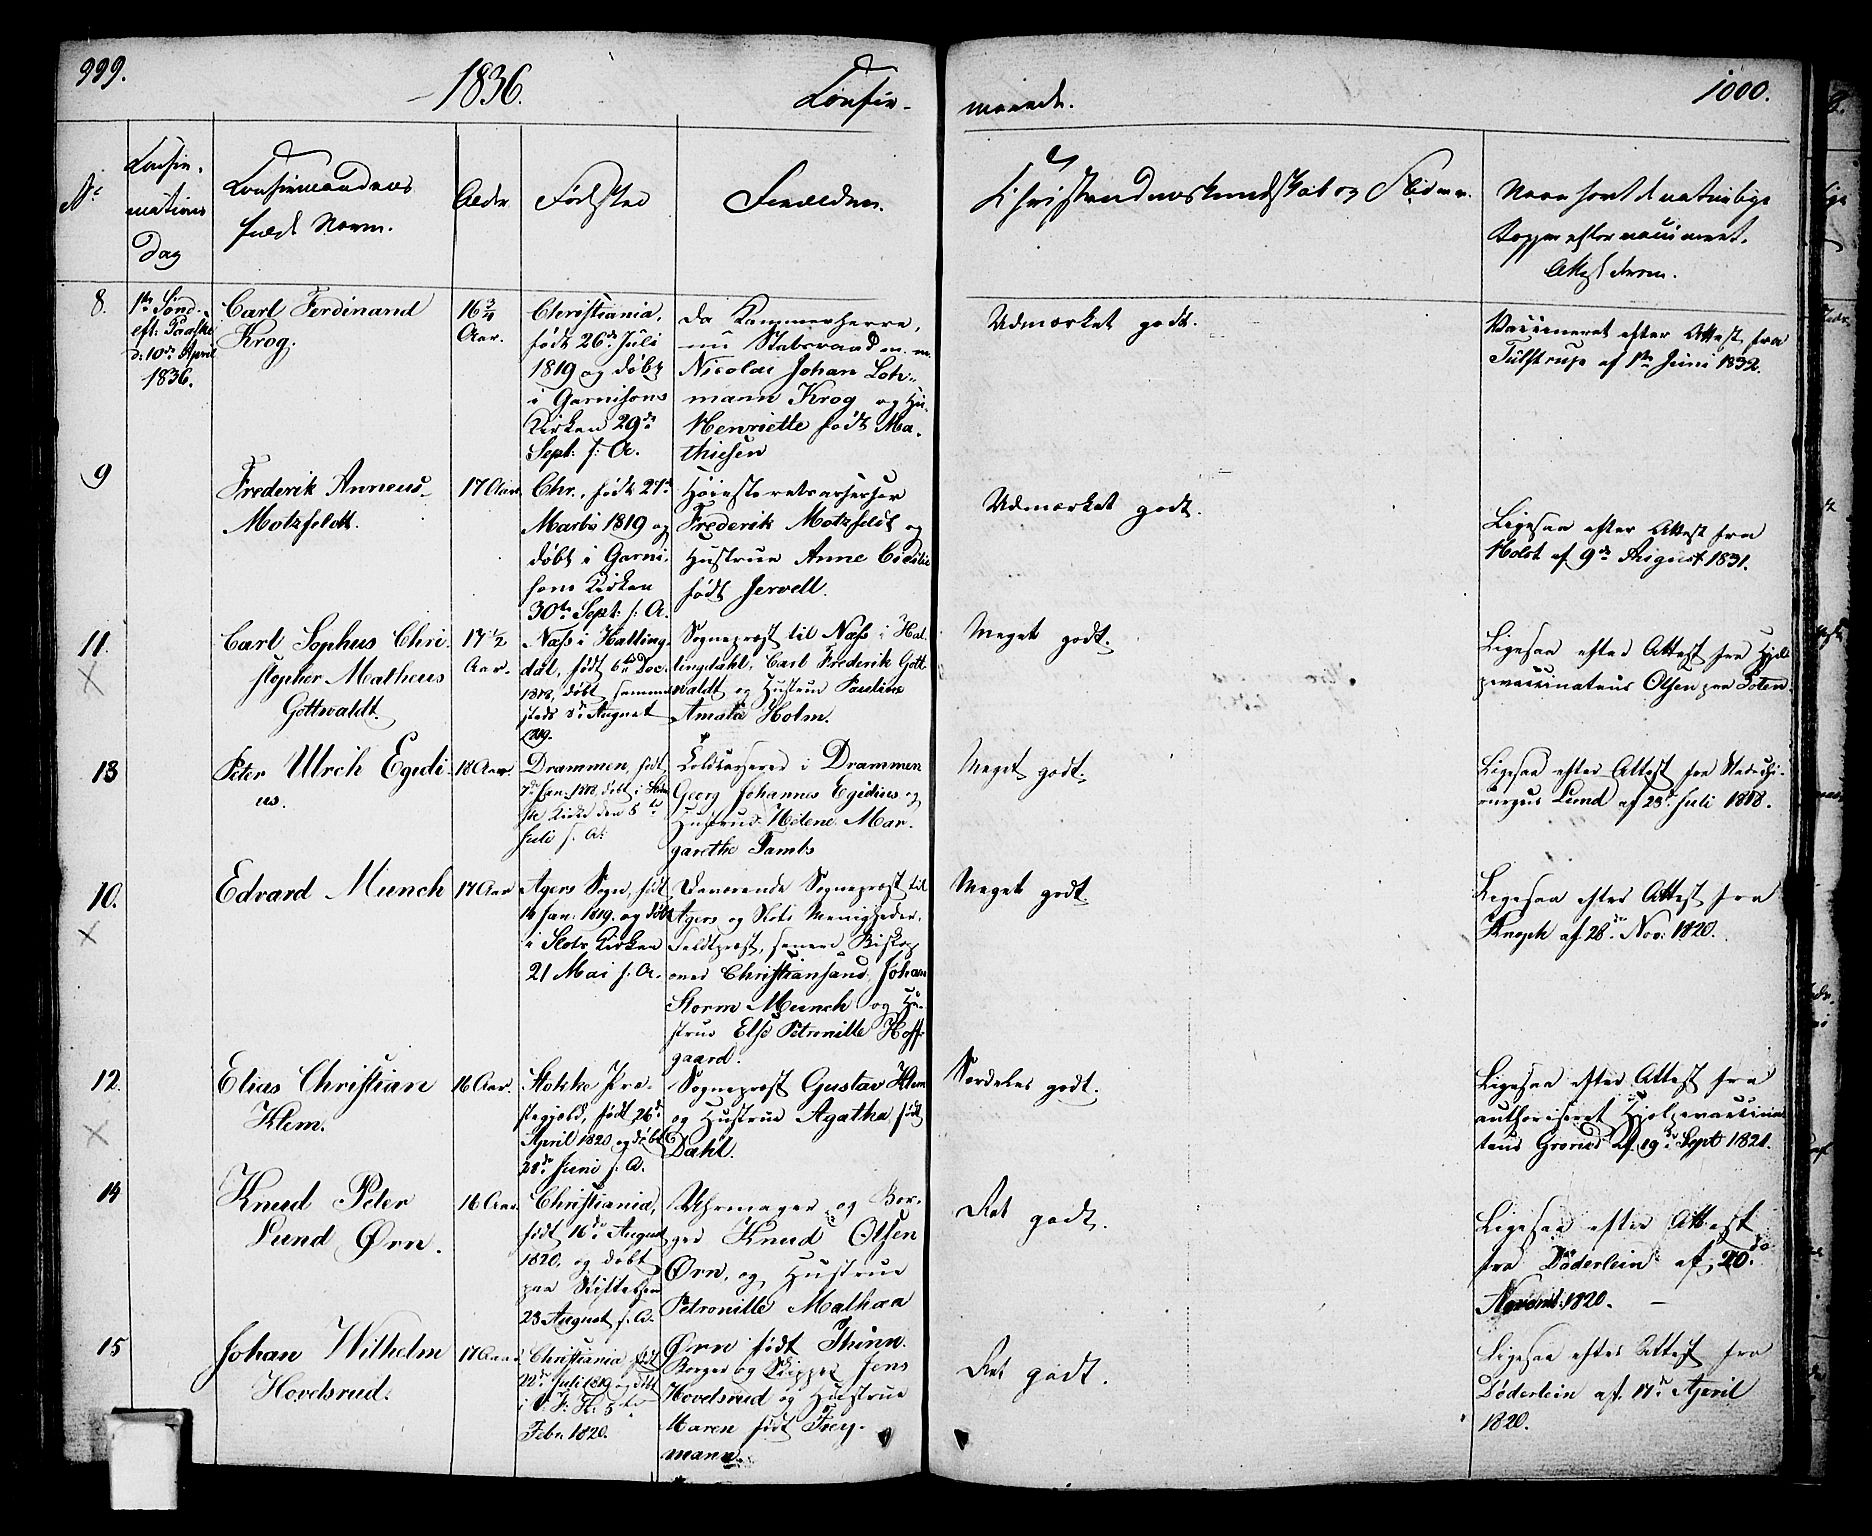 999.
1836.
Confir-
merede.
1000.
No
Confir-
mations
Dag
Confirmandens
fulde Navn.
Alder
Fødsted
Forældre.
Christendomskundskab og Flid m. m.
Naar havt de naturlige
Kopper eller vaccineret.
Attesterne.
8.
1ste Sønd.
eft: Paaske
d: 10de April
1836.
Carl Ferdinand
Krog.
16 3/4
Aar.
Christiania,
født 26de Juli
1819 og døbt
i Garnisons
Kirken 29de
Sept: s: A.
da Kammerherre,
nu Statsraad m. m.
Nicolai Johan Loh-
mann Krog og Hu.
Henriette født Ma-
thiesen
Udmærket godt.
Vaccineret efter Attest fra
Tulstrup af 1ste Juni 1832.
9
Frederik Anneus
Motzfeldt.
17 Aar
Chr., født 27de
Marts 1819 og
døbt i Garni-
sons Kirken
30te Sept: s: A.
Høiesteretsassessor
Frederik Motzfeldt og
Hustrue Anne Cicilie
født Jervell.
Udmærket godt.
Ligesaa efter Attest fra
Holst af 9de August 1831.
11.
Carl Sophus Chri
stopher Matheus
Gottwaldt.
17 1/2
Aar.
Næss i Halling-
dal, født 6te Dec.
1818, døbt samme
steds 8de August
1819.
Sogneprest til Næss i Hal
lingdahl, Carl Frederik Gott
waldt og Hustrue Pauline
Amalia Holm.
Meget godt.
Ligesaa efter Attest fra Hjelp
evaccinateur Olsen paa Toten.
13
Peter Ulrich Egidi-
us.
18 Aar.
Drammen, født
7de Jan: 1818, døbt i
Kirke den 5te
Juli s. A.
Toldkasserer i Drammen
Georg Johannes Egidius og
Hustrue Helene Mar-
garethe Tambs
Meget godt.
Ligesaa efter Attest fra
Lund af 23de Juli 1818.
10.
Edvard Munch
17 Aar
Agers Sogn, født
14 Jan: 1819. og døbt
i Slots Kirken
21 Mai s. A.
Daværende Sogneprest til
Agers og Slots Menigheder,
Feldtprest, senere Biskop
over Christiansand, Johan
Storm Munch og Hu-
strue Else Petronille Hoff-
gaard.
Meget godt
Ligesaa efter Attest fra
Knoph af 28de Nov: 1820.
12.
Elias Christian
Klem.
16 Aar.
Stokke Præ-
stegjeld, født 26de
April 1820 og døbt
28de Juni s. A.
Sogneprest Gustav Klem
og Hustrue Agatha født
Dahl.
Særdeles godt.
Ligesaa efter Attest fra
authoriseret Hjelpevaccina
teur af 19de Sept 1821.
14
Knud Peter
Lund Ørn.
16 Aar.
Christiania,
født 16de August
1820, og døbt
paa Stiftelsen
23 August s. A.
Uhrmager og Bor-
ger Knud Olsen
Ørn, og Hustrue
Petronille Mathea
Ørn født Thinn.
Det godt.
Ligesaa efter Attest
fra Döderlein af 20de
Novemb: 1820.
15
Johan Wilhelm
Hovelsrud.
17 Aar
Christiania, født
22de Juli 1819 og døbt
i
Febr: 1820.
Borger og Skipper Jens
Hovelsrud og Hustrue
Maren født Frey-
mann.
Det godt.
Ligesaa efter Attest fra
Döderlein af 17de April
1820.